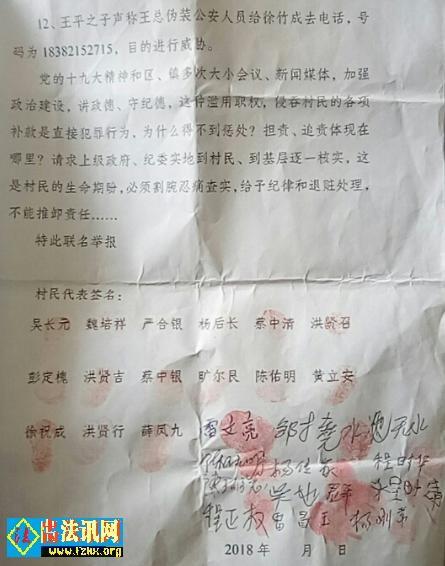 12、王平之子声称王总伪装公安人员给徐竹成去电话，号
码为 18382152715，目的进行威胁。
党的十九大精神和区、镇多次大小会议、新闻媒体，加强
政治建设，讲政德、守纪德，这种滥用职权，侵吞村民的各项
补款是直接犯罪行为，为什么得不到惩处？担责、追责体现在
哪里？请求上级政府、纪委实地到村民、到基层逐一核实，这
是村民的生命期盼，必须割腕忍痛查实，给予纪律和退赃处理，
不能推卸责任……
特此联名举报
村民代表签名：
吴长元 魏培祥 严合银 杨后长 蔡中清 洪贤召
彭定槐 洪贤吉 蔡中银 旷尔艮 陈佑明 黄立安
徐祝成 洪贤行 薛凤九
程正权
2018 年 月 日
法 出法讯网
www.fzhx.org